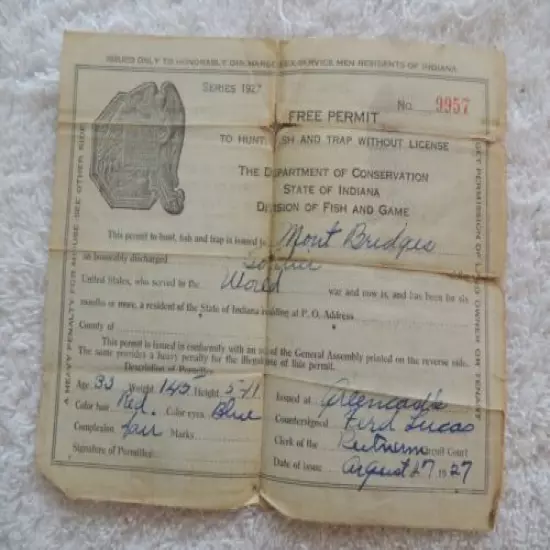 ISSUED ONLY TO HONORABLY DISCHARGED EX-SERVICE MEN RESIDENTS OF INDIANA
SERIES 1927
No. 9957
FREE PERMIT
TO HUNT, FISH AND TRAP WITHOUT LICENSE
THE DEPARTMENT OF CONSERVATION
STATE OF INDIANA
DIVISION OF FISH AND GAME
This permit to hunt, fish and trap is issued to Mont Bridges
an honorably discharged Soldier
United States, who served in the World war and now is, and has been for six
months or more, a resident of the State of Indiana residing at P. O. Address
County of
This permit is issued in conformity with an act of the General Assembly printed on the reverse side.
The same provides a heavy penalty for the illegal use of this permit.
Description of Permittee
Age 33 Weight 145 Height 5-11
Color hair Red. Color eyes Blue
Complexion fair Marks
Signature of Permittee
Issued at Greencastle
Countersigned Ferd Lucas
Clerk of the Putnam Circuit Court
Date of issue August 27 1927
A HEAVY PENALTY FOR MISUSE-SEE OTHER SIDE
GET PERMISSION OF LAND OWNER OR TENANT